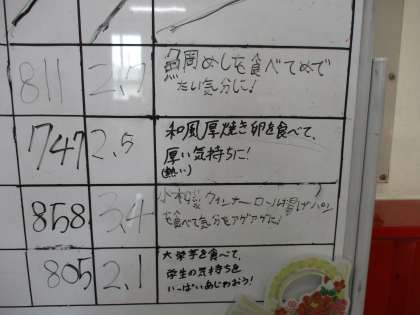 811 2.7 鯛めしを食べてめで
たい気分に!
747 2.5 和風厚焼き卵を食べて、
厚い気持ちに!
(熱い)
858 3.4 ウインナーロール揚げパン
を食べて気分をアゲアゲに!
805 2.1 大学芋を食べて、
学生の気持ちを
いっぱいあじわおう!